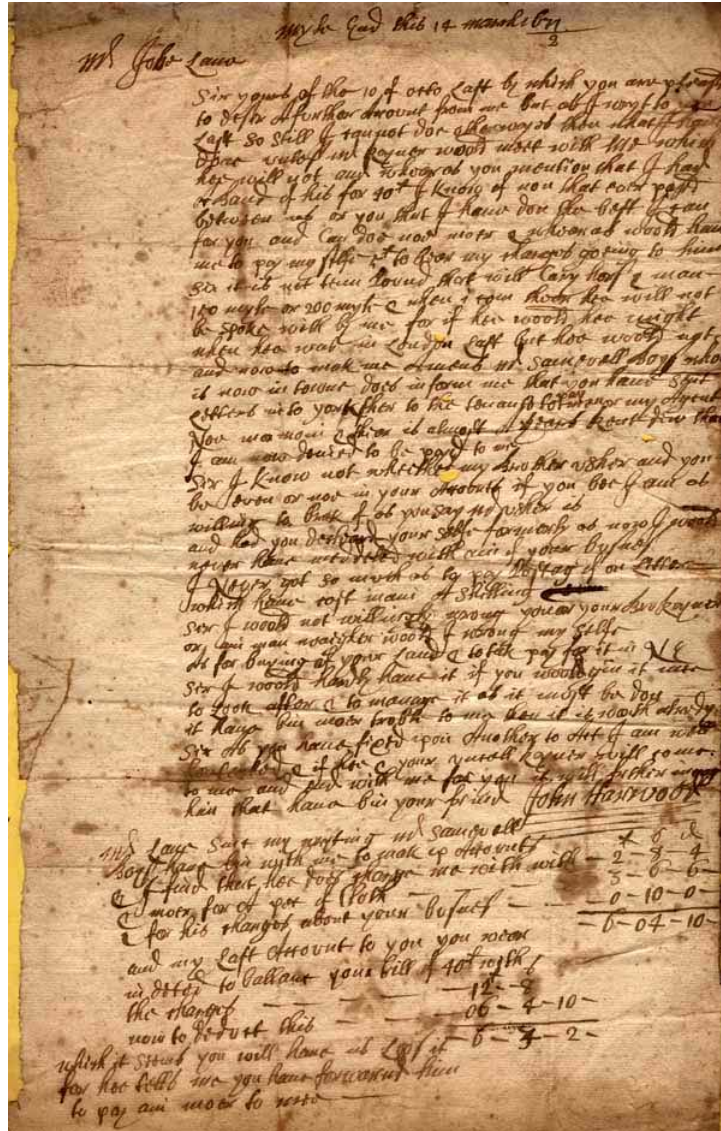 Myle End this 14 march 167½
Mr Jobe Lane
Sir yours of the 10 of octo Last by which you are pleased
to desir A further Acount from me but as I wryt to you
Last so still I cannot doe otherways then what I have
done untell mr Rayner woold meet with Me which
hee will not and wheras you mention that I had
a Band of his for 40£ I know of non that ever past
between us or you but I have don the best I can
for you and Can doe noe moer & wheras woold have
me to pay my selfe & to bear my charges going to him
Sir it is not tenn pound that will Cary hors & man
150 myle or 200 myle & when I com theer hee will not
be spoke with by me for if hee woold hee might
when hee was in London Last but hee woold not
and now to mak me amends mr Samevell Boys who
is now in towne does inform me that you have sent
Letters into yorksher to the tenants to pay me or my Agent
Noe mor moni & thier is almost a years Rent dew that
I am now denied to be paid to me
Ser I know not whether my Brother usher and you
be even or noe in your Acounts if you bee I am as
willing to be of as you say mr usher is
and had you declared your selfe formerly as now I woold
never have medelled with ani of your busnes
I Never got so much as to pay Postag of on Letter
which have cost mani A Shilling
Ser I woold not willingly wrong you or your Bro Rayner
or ani man neigher woold I wrong my selfe
As for buying of your Land & to tak pay for it in N E
Ser I woold hardly have it if you woold give it mee
to Look after & to manage it as it must be don
it have bin moer troble to me then it is worth alredy
Sir As you have fixed upon Another to Act I am well
contented & if hee & your uncell Rayner will come
to me and end with me for you it will further
him that have bin your friend John Harwood
Mr Lane Since my wryting mr Samevell
Boys have bin with me to mak up Acounts
& I find that hee does charge me with - 2 - 8 - 4
& moer for of pec of Cloth - 3 - 6 - 6 -
& for his charges about your busnes - 0 - 10 - 0 -
- 6 - 04 - 10 -
and my Last Acount to you you wear
in deted to ballanc your bill of 40£ with
the charges - 12 - 8
now to deduct this - 06 - 4 - 10 -
- 6 - 3 - 2 -
which it seems you will have us Lose it
for hee tells me you have forwarnd him
to pay ani moer to mee